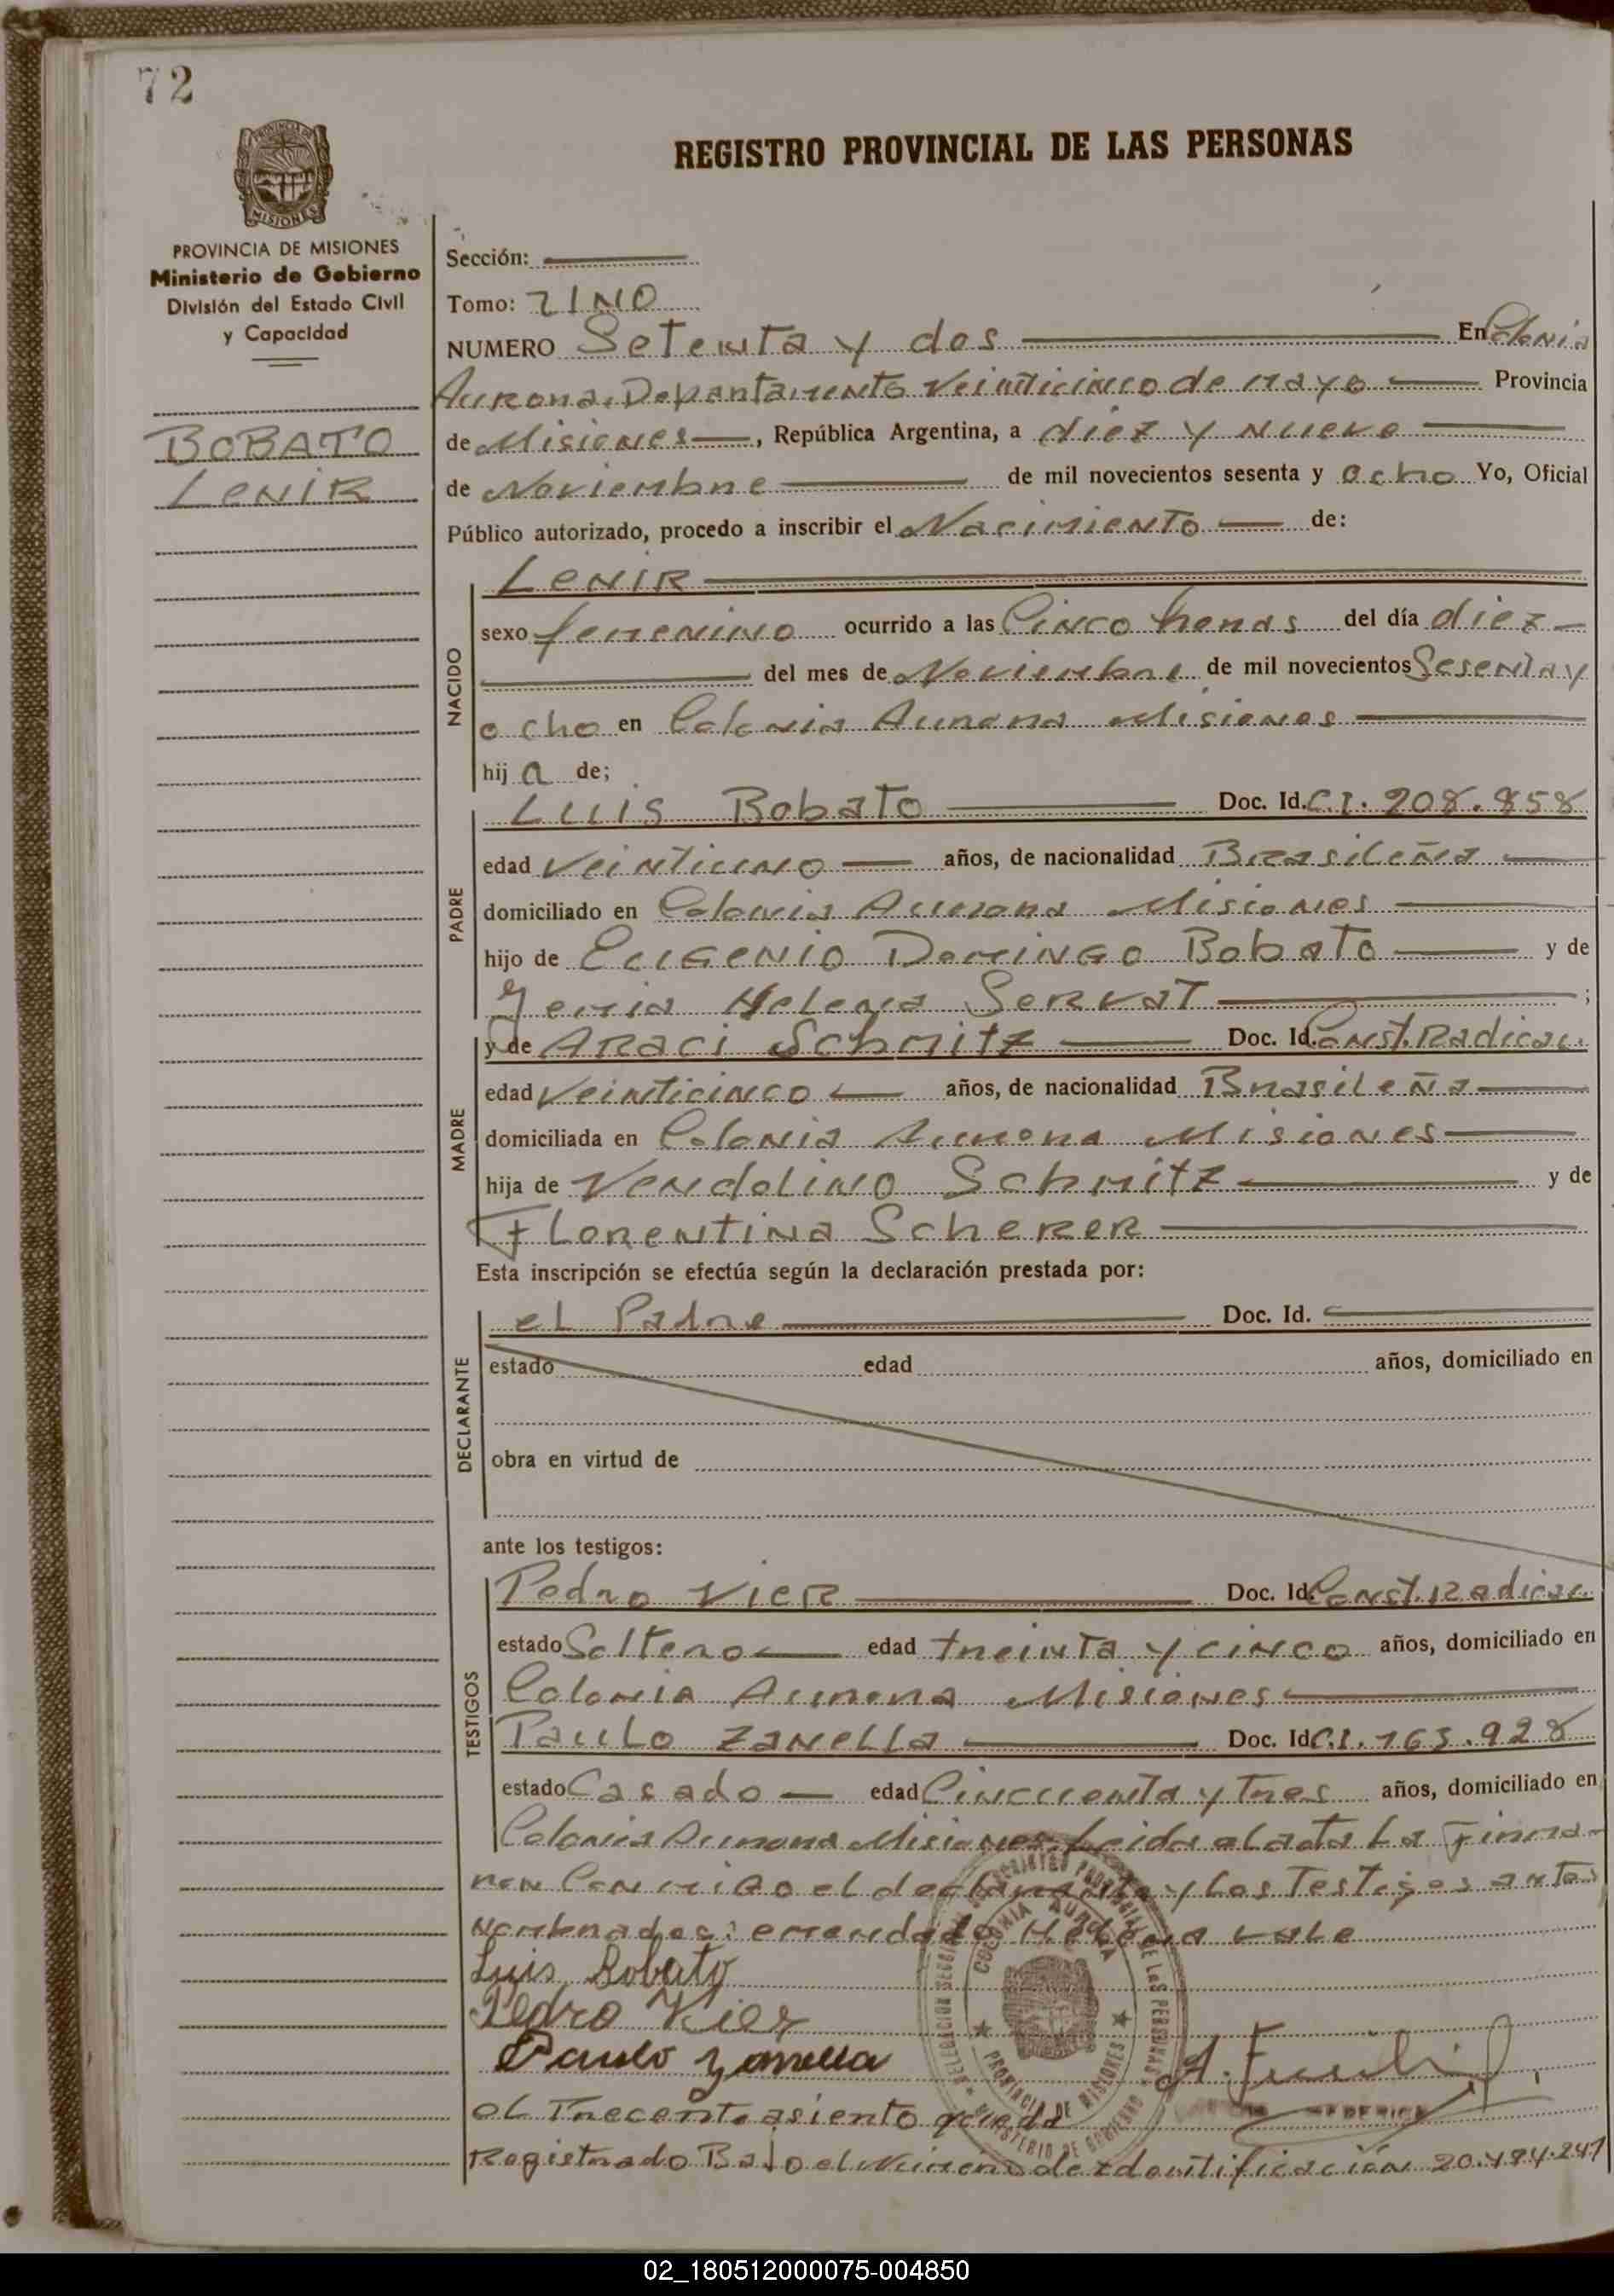 72
REGISTRO PROVINCIAL DE LAS PERSONAS
PROVINCIA DE MISIONES
Ministerio de Gobierno
División del Estado Civil
y Capacidad
BOBATO
LENIR
Sección:
Tomo: UNO
NUMERO Setenta y dos En Colonia
Aurora, Departamento Veinticinco de Mayo Provincia
de Misiones, República Argentina, a diez y nueve
de Noviembre de mil novecientos sesenta y ocho Yo, Oficial
Público autorizado, procedo a inscribir el Nacimiento de:
NACIDO
LENIR
sexo femenino ocurrido a las Cinco horas del día diez
del mes de Noviembre de mil novecientos Sesenta y
ocho en Colonia Aurora Misiones
hij a de;
PADRE
Luis Bobato Doc. Id. C.I. 208.858
edad Veintiuno años, de nacionalidad Brasileña
domiciliado en Colonia Aurora Misiones
hijo de Eugenio Domingo Bobato y de
Helena Servat ;
MADRE
y de Araci Schmitz Doc. Id. Const. Radicac.
edad Veinticinco años, de nacionalidad Brasileña
domiciliada en Colonia Aurora Misiones
hija de Vendolino Schmitz y de
Florentina Scherer
Esta inscripción se efectúa según la declaración prestada por:
DECLARANTE
el Padre Doc. Id.
estado edad años, domiciliado en
obra en virtud de
ante los testigos:
TESTIGOS
Pedro Vier Doc. Id. Const. Radicac.
estado Soltero edad treinta y cinco años, domiciliado en
Colonia Aurora Misiones
Paulo Zanella Doc. Id. C.I. 163.928
estado Casado edad Cincuenta y Tres años, domiciliado en
Colonia Aurora Misiones. Leida el acta La Firma-
ron Conmigo el declarante y Los Testigos antes
nombrados: emendado Helena vale
Luis Bobato
Pedro Vier
Paulo Zanella
el Precente asiento queda
Registrado Bajo el Numero de Identificación 20.484.241
COLONIA AURORA
PROVINCIA DE MISIONES
02_180512000075-004850